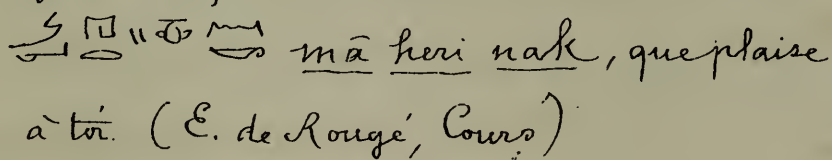 mā heri nak, que plaise
à toi. (E. de Rougé, Cours)